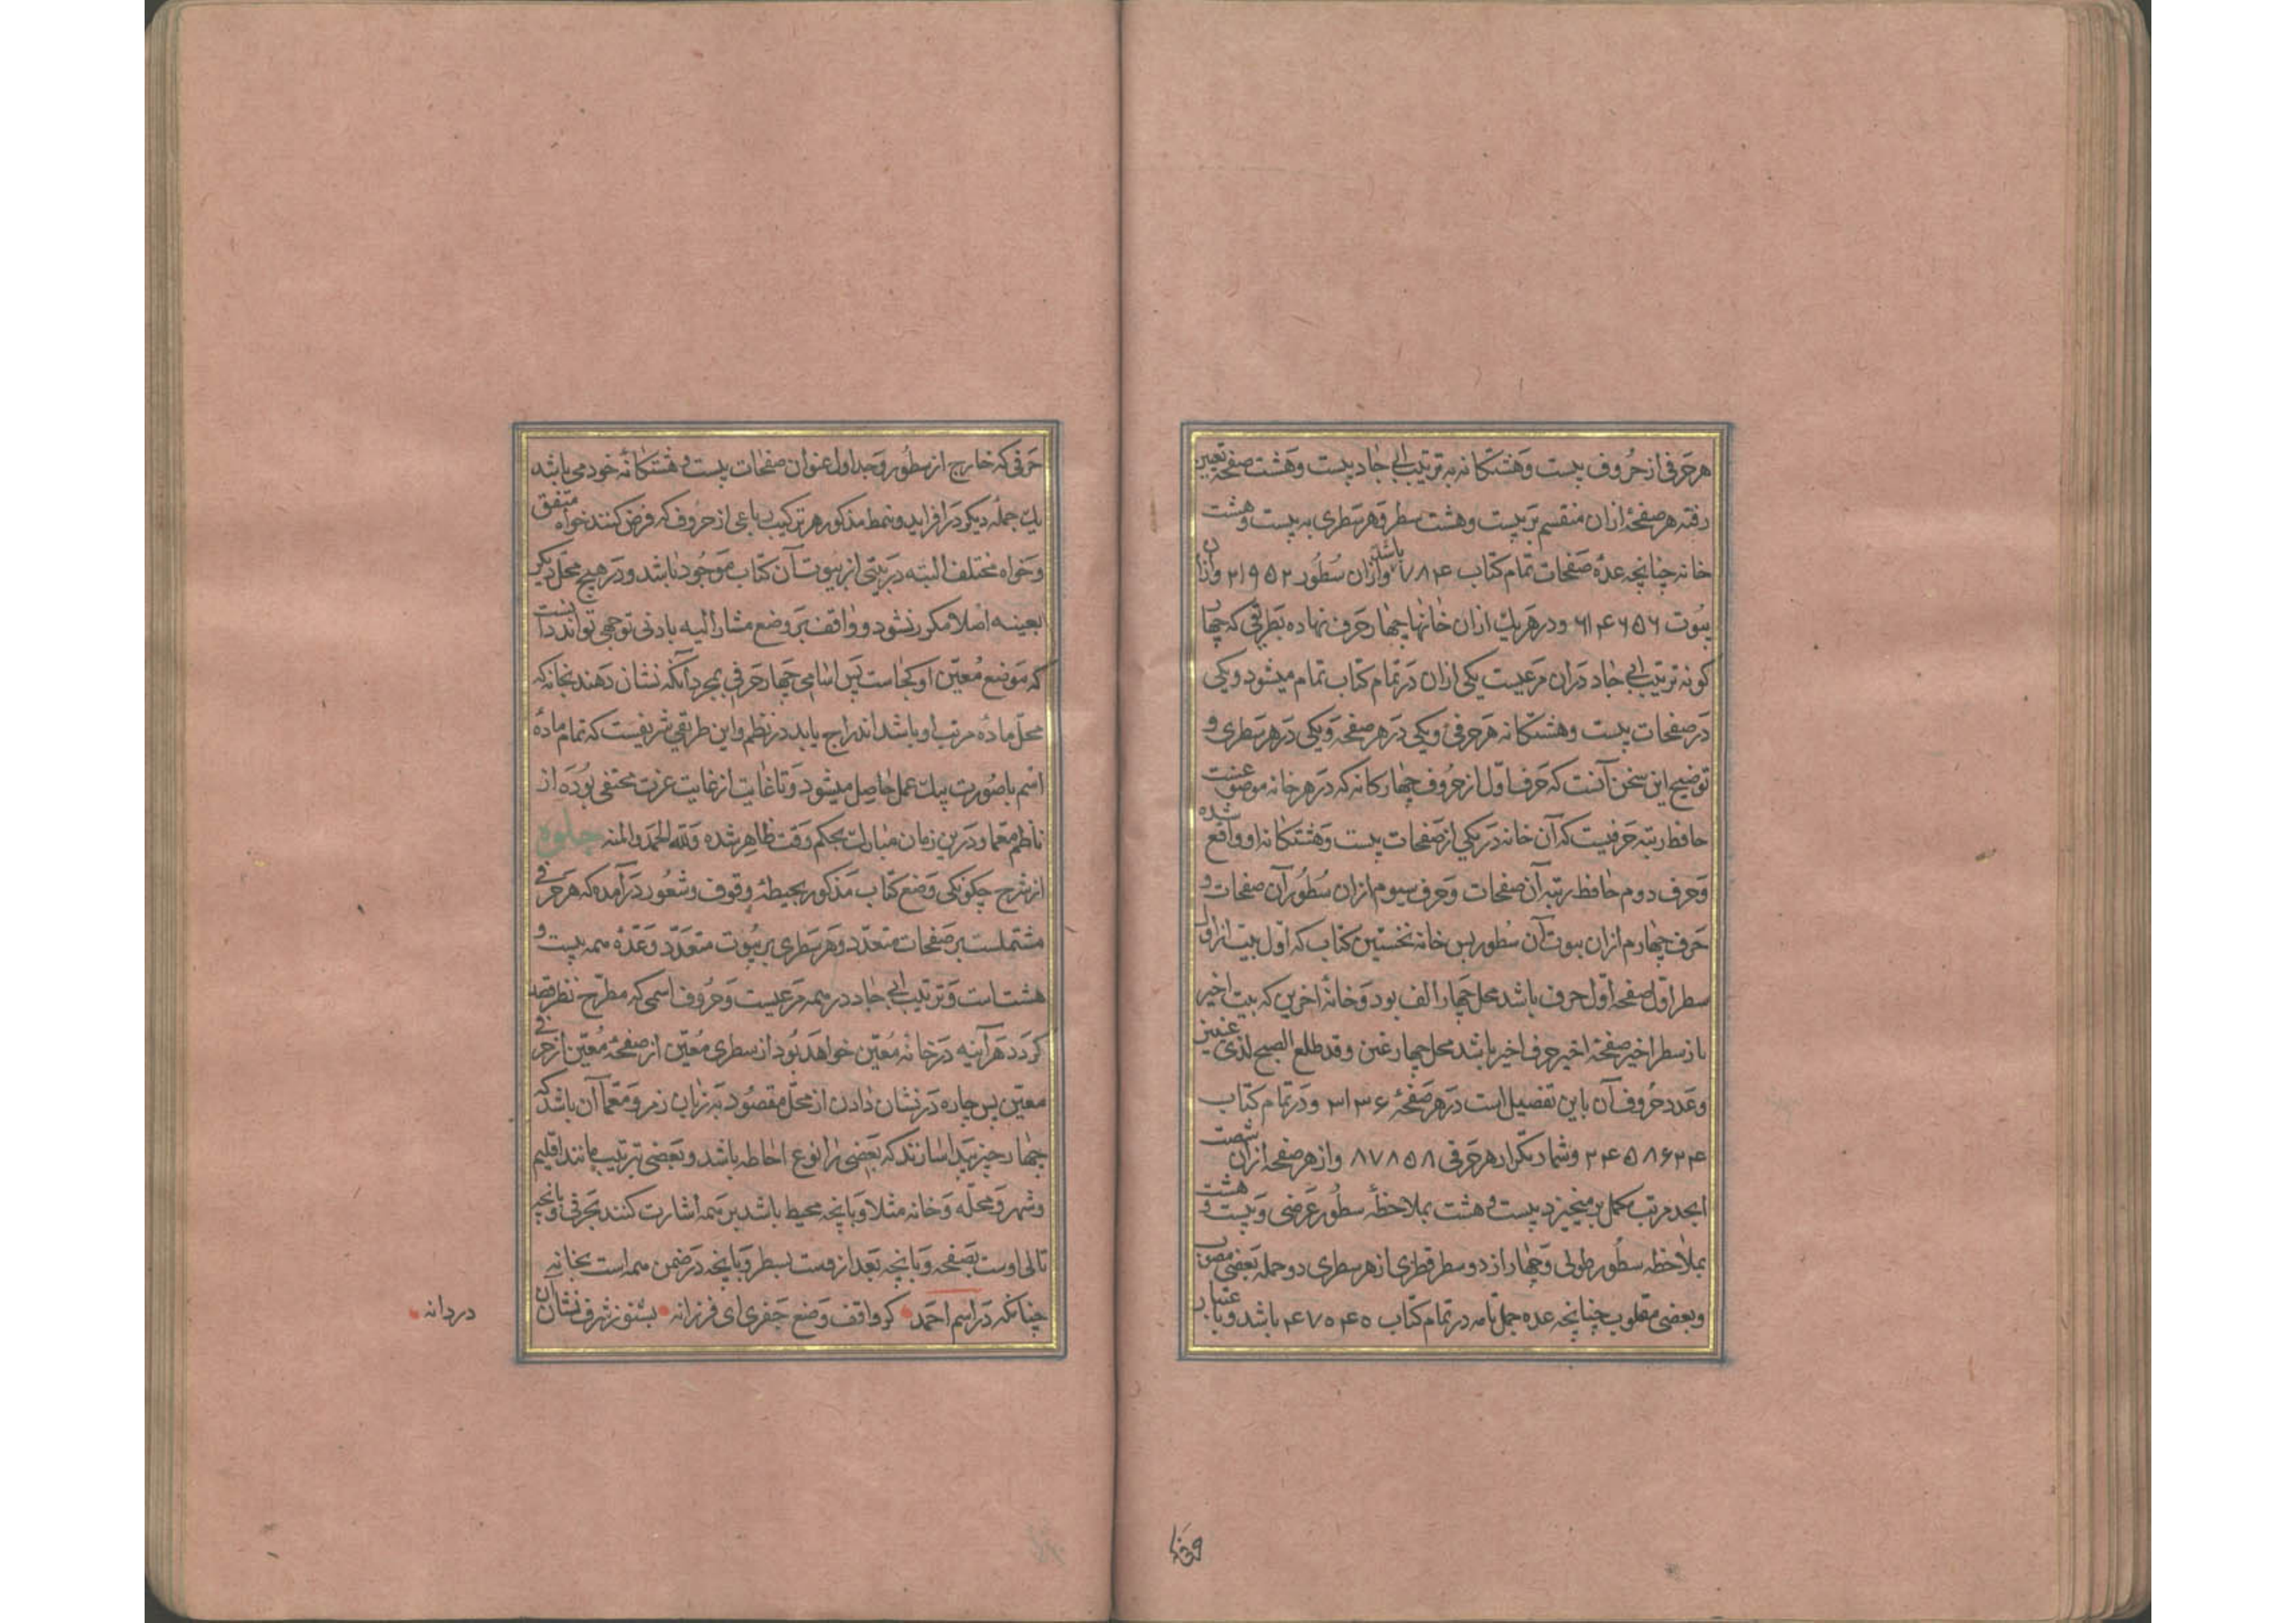 هر حرفی از حروف بیست و هشتکانه به ترتیب ابی جاد بیست و هشت صفحه تعیین
رفته هر صفحهٔ ازان منقسم بر بیست و هشت سطر و هر سطری به بیست و هشت
خانه چنانچه عدهٔ صفحات تمام کتاب ۷۸۴ باشد و ازان سطور ۲۱۹۵۲ و ازان
بیوت ۶۱۴۶۵۶ و در هر یك ازان خانها چهار حرف نهاده بطریقی که چهار
کونه ترتیب ابی جاد دران مرعیست یکی ازان در تمام کتاب تمام میشود و یکی
در صفحات بیست و هشتکانه هر حرفی و یکی در هر صفحه و یکی در هر سطری و
توضیح این سخن آنست که حرف اول از حروف چهارکانه که در هر خانه موضوعست
حافظ رتبه حرفیست که آن خانه در یکی از صفحات بیست و هشتکانه او واقع شده
و حرف دوم حافظ رتبه آن صفحات و حرف سیوم ازان سطور آن صفحات و
حرف چهارم ازان بیوت آن سطور پس خانه نخستین کتاب که اول بیت از اول
سطر اول صفحه اول حرف باشد محل چهار الف بود و خانهٔ اخرین که بیت اخیر
باز سطر اخیر صفحهٔ اخیر حرف اخیر باشد محل چهار غین وقد طلع الصبح لذی عینین
و عدد حروف آن باین تفصیل است در هر صفحهٔ ۳۱۳۶ و در تمام کتاب
۲۴۵۸۶۲۴ و شمار تکرار هر حرفی ۸۷۸۵۸ و از هر صفحه ازان شصت
ابجد مرتب مکمل بر میخیزد بیست و هشت بملاحظهٔ سطور عرضی و بیست و هشت
بملاحظه سطور طولی و چهار از دو سطر قطری از هر سطری دو جمله بعضی مصوب
و بعضی مقلوب چنانچه عده جمل تامه در تمام کتاب ۴۷۵۴۵ باشد و باعتبار
حرفی که خارج از سطور و جداول عنوان صفحات بیست و هشتکانه خود می باشد
یك جمله دیکر درافزاید و نمط مذکور هر ترکیب رباعی از حروف که فرض کنند خواه متفق
و خواه مختلف البته در بیتی از بیوت آن کتاب موجود باشد و در هیچ محل دیکر
بعینه اصلا مکرر نشود و واقف بر وضع مشار الیه بادنی توجهی تواند دانست
که موضع معین او کجاست پس اسامی چهار حرفی بمجرد آنکه نشان دهند بخانه که
محل ماده مرتب او باشد اندراج یابد در نظم و این طریقی شریفیست که تمام مادهٔ
اسم با صورت بیك عمل حاصل میشود و تا غایت از غایت عزت مختفی بوده از
ناظم معما و درین زمان مبارك بحکم وقت ظاهر شده ولله الحمد والمنه جلوه
از شرح چکونکی وضع کتاب مذکور بحیطهٔ وقوف و شعور درآمده که هر حرفی
مشتملست بر صفحات متعدد و هر سطری بر بیوت متعدد و عدهٔ همه بیست و
هشت است و ترتیب ابی جاد در همه مرعیست و حروف اسمی که مطرح نظر قصد
کردد هرآینه در خانهٔ معین خواهد بود از سطری معین از صفحهٔ معین از حرفی
معین پس چاره در نشان دادن از محل مقصود به زبان رمز و معما آن باشد که
چهار چیز پیدا سازند که بعضی را نوع احاطه باشد و بعضی ترتیب مانند اقلیم
و شهر و محله و خانه مثلا و بانچه محیط باشد بر همه اشارت کنند بحرفی و بانچه
تالی اوست بصفحه و بانچه بعد ازوست بسطر و بانچه در ضمن همه است بخانه
چنانکه در اسم احمد کر واقف وضع جفری ای فرزانه بشنو ز شرف نشان آن
دردانه